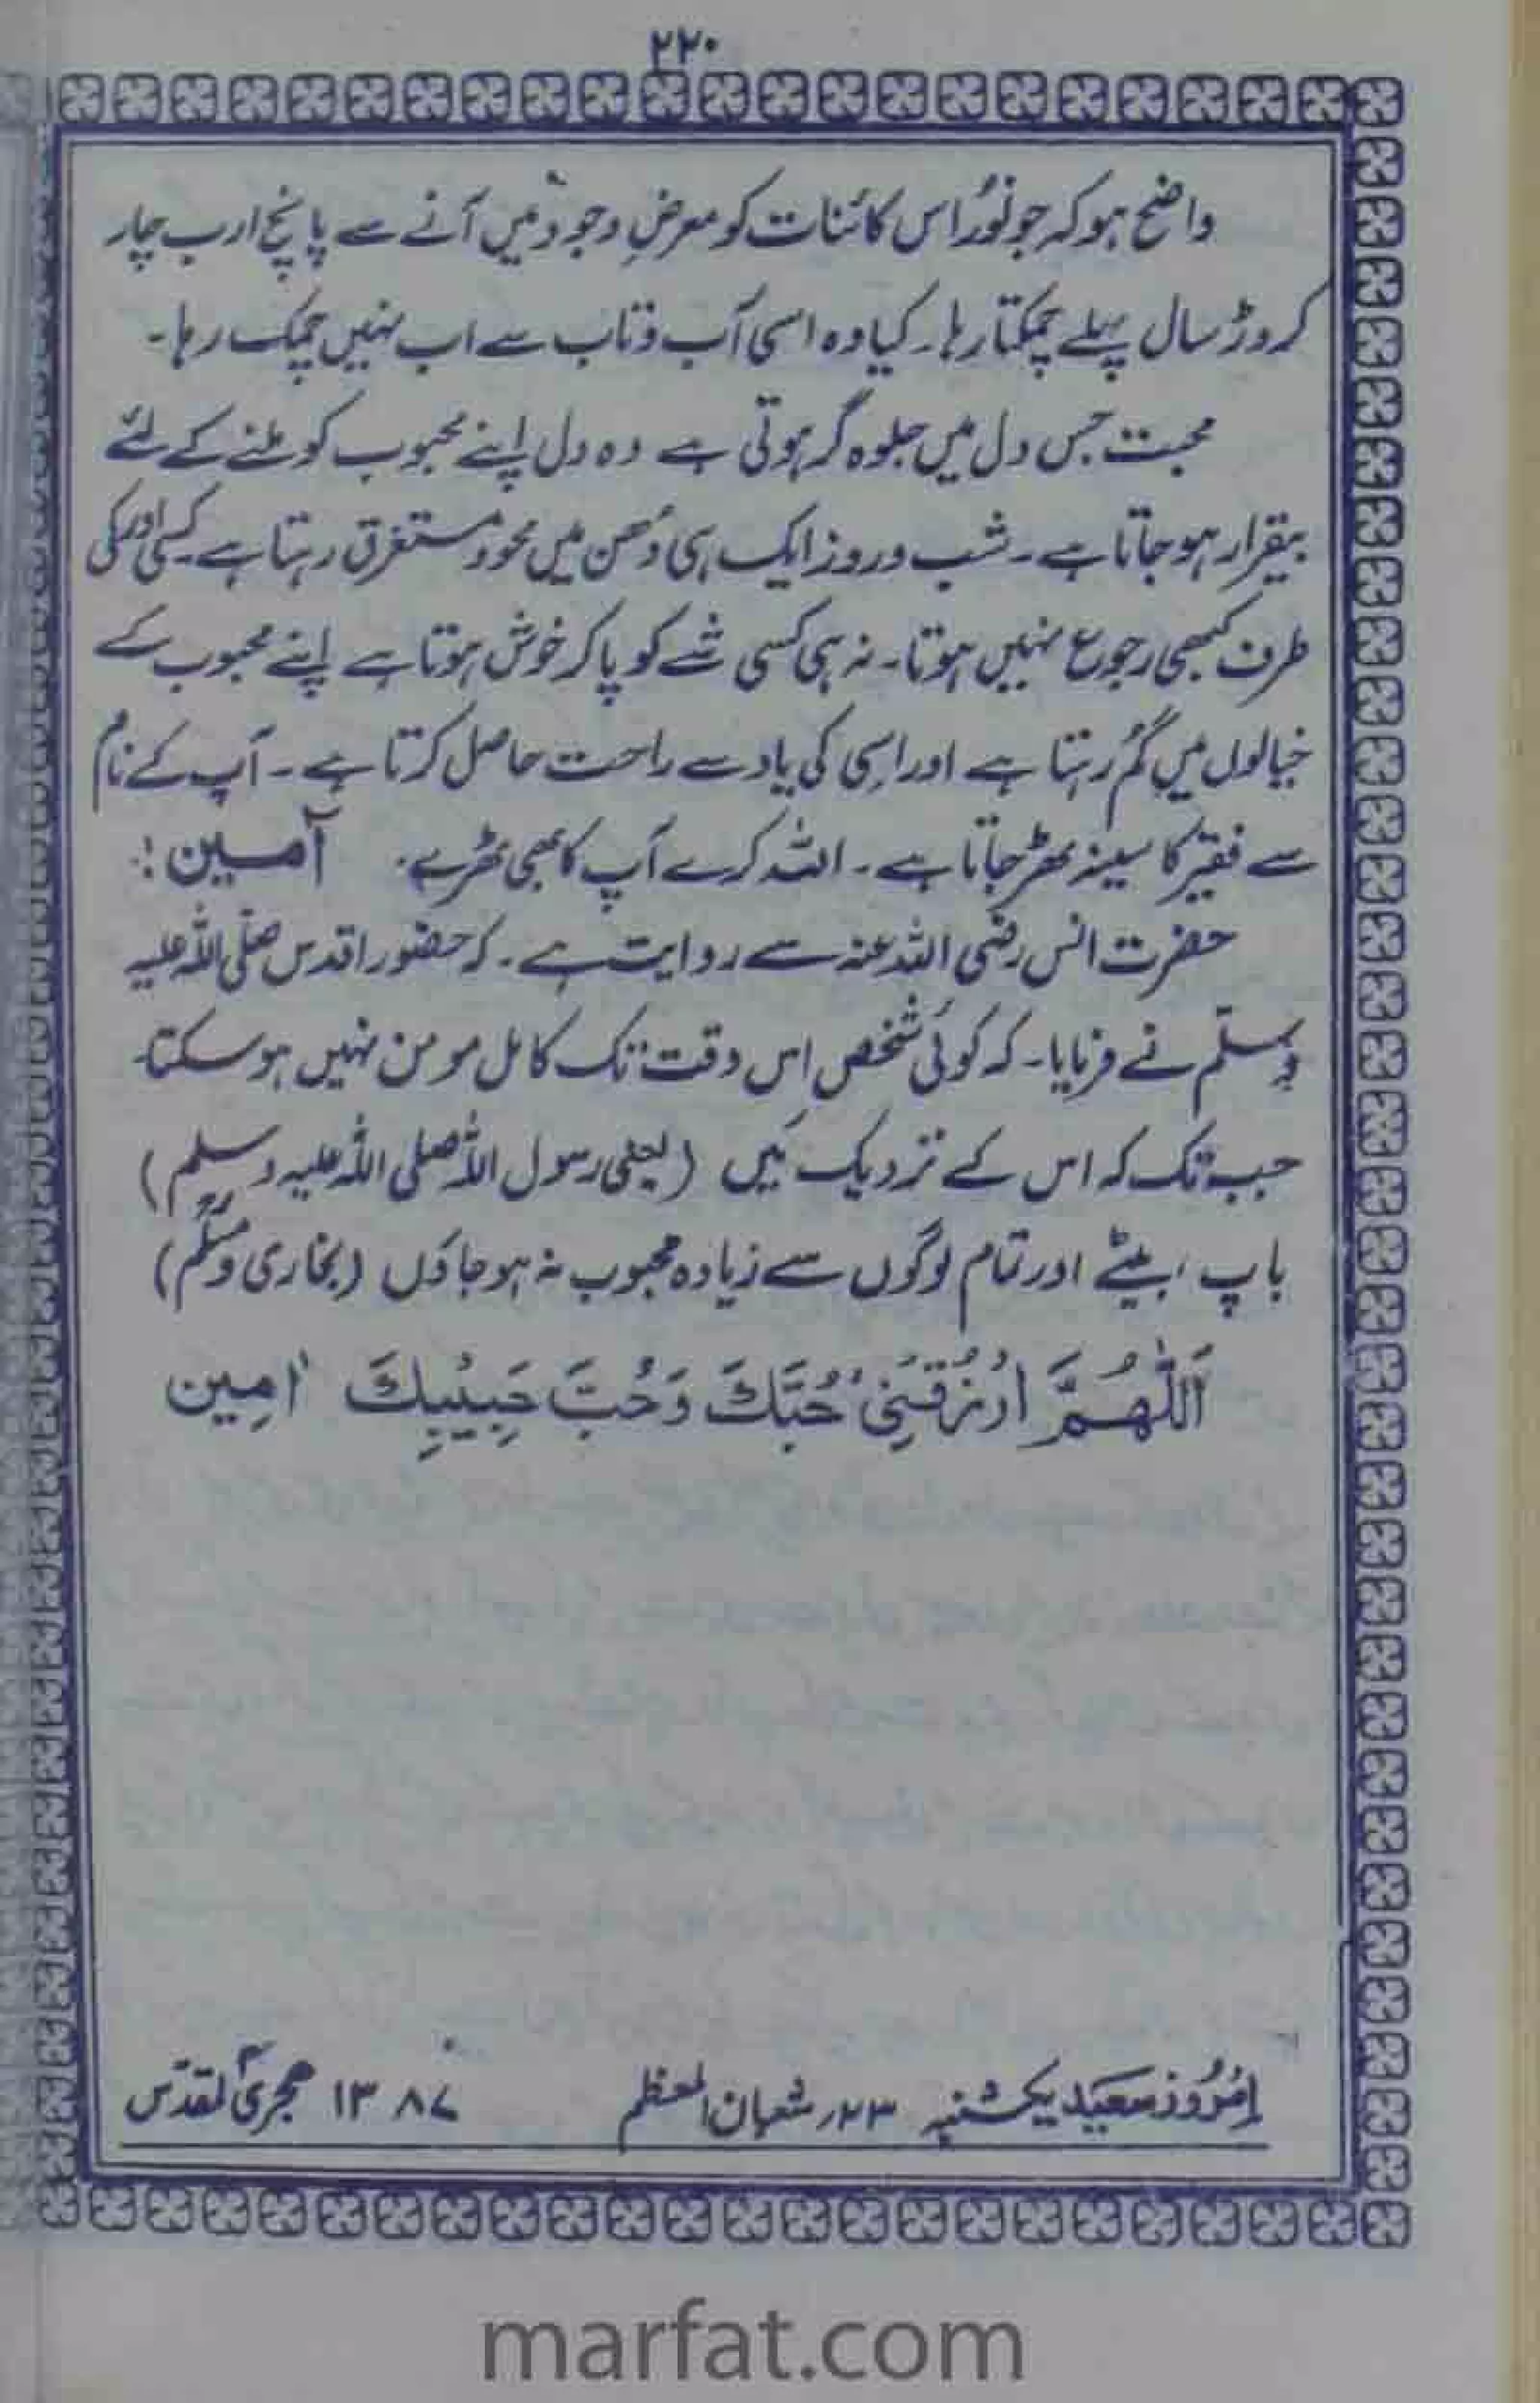 ۲۲۰
واضح ہو کہ جو نُور اس کائنات کو معرضِ وجود میں آنے سے پانچ ارب چار
کروڑ سال پہلے چمکتا رہا۔ کیا وہ اسی آب و تاب سے اب نہیں چمک رہا۔
محبت جس دل میں جلوہ گر ہوتی ہے وہ دل اپنے محبوب کو ملنے کے لئے
بیقرار ہو جاتا ہے۔ شب و روز ایک ہی دُھن میں محو و مستغرق رہتا ہے۔ کسی اور کی
طرف کبھی رجوع نہیں ہوتا۔ نہ ہی کسی شے کو پا کر خوش ہوتا ہے اپنے محبوب کے
خیالوں میں گُم رہتا ہے اور اسی کی یاد سے راحت حاصل کرتا ہے۔ آپ کے نام
سے فقیر کا سینہ ٹھر جاتا ہے۔ اللہ کرے آپ کا بھی ٹھرے۔ آمین!
حضرت انس رضی اللہ عنہ سے روایت ہے۔ کہ حضور اقدس صلّی اللہ علیہ
وسلّم نے فرمایا۔ کہ کوئی شخص اس وقت تک کامل مومن نہیں ہو سکتا۔
جب تک کہ اس کے نزدیک میں (یعنی رسول اللہ صلی اللہ علیہ وسلم)
باپ، بیٹے اور تمام لوگوں سے زیادہ محبوب نہ ہو جاؤں (بخاری و مسلم)
اَللّٰهُمَّ ارْزُقْنِیْ حُبَّكَ وَحُبَّ حَبِیْبِكَ اٰمِین
اِمْرُوز سَعِید یکشنبہ ۲۳ شعبان المعظم ۱۳۸۷ ہجری المقدّس
marfat.com